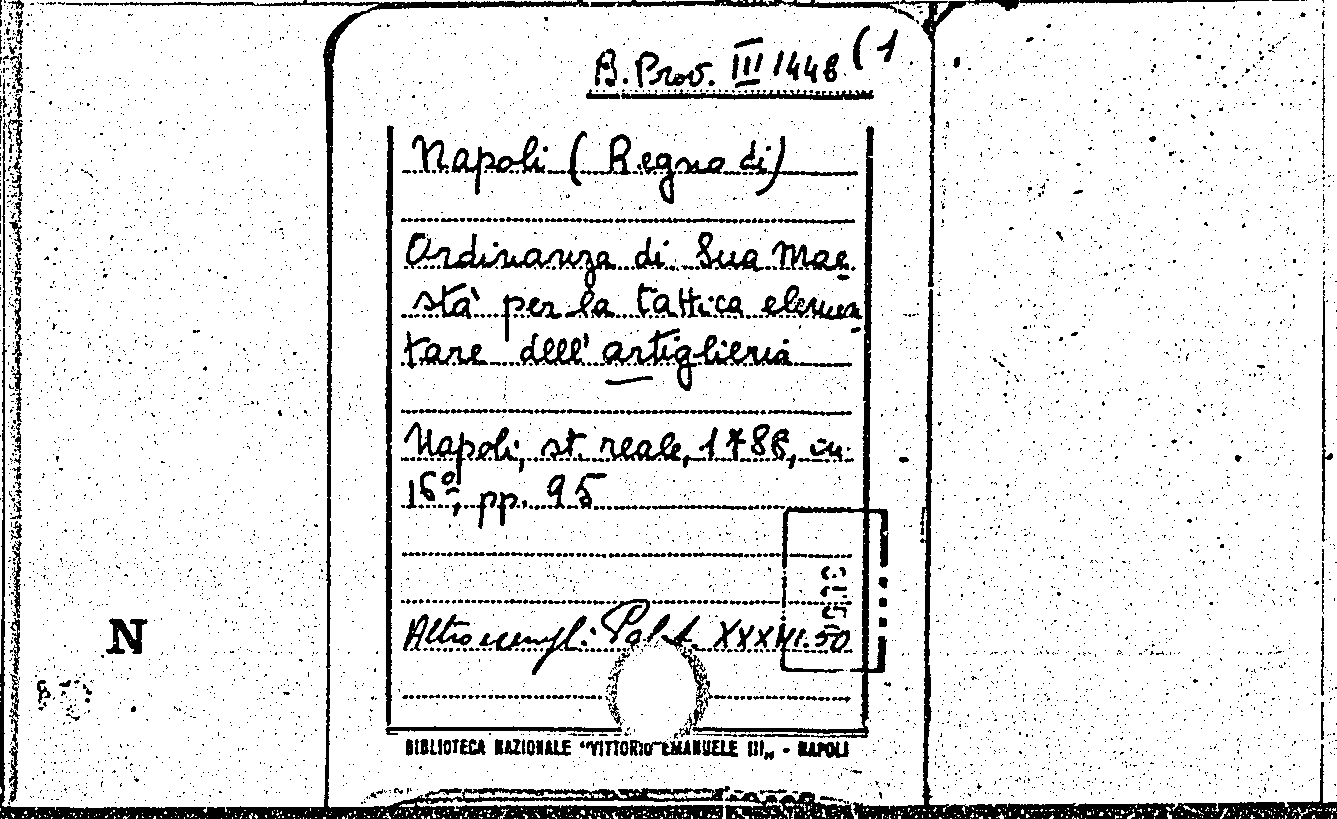 B. Prov. III 1448 (1
Napoli (Regno di)
Ordinanza di Sua Mae
stà per la tattica elemen
tare dell' artiglieria
Napoli, st. reale, 1788, in
16º, pp. 95
Altro esempl: Palat. XXXVI.50
N
BIBLIOTECA NAZIONALE "VITTORIO EMANUELE III" - NAPOLI